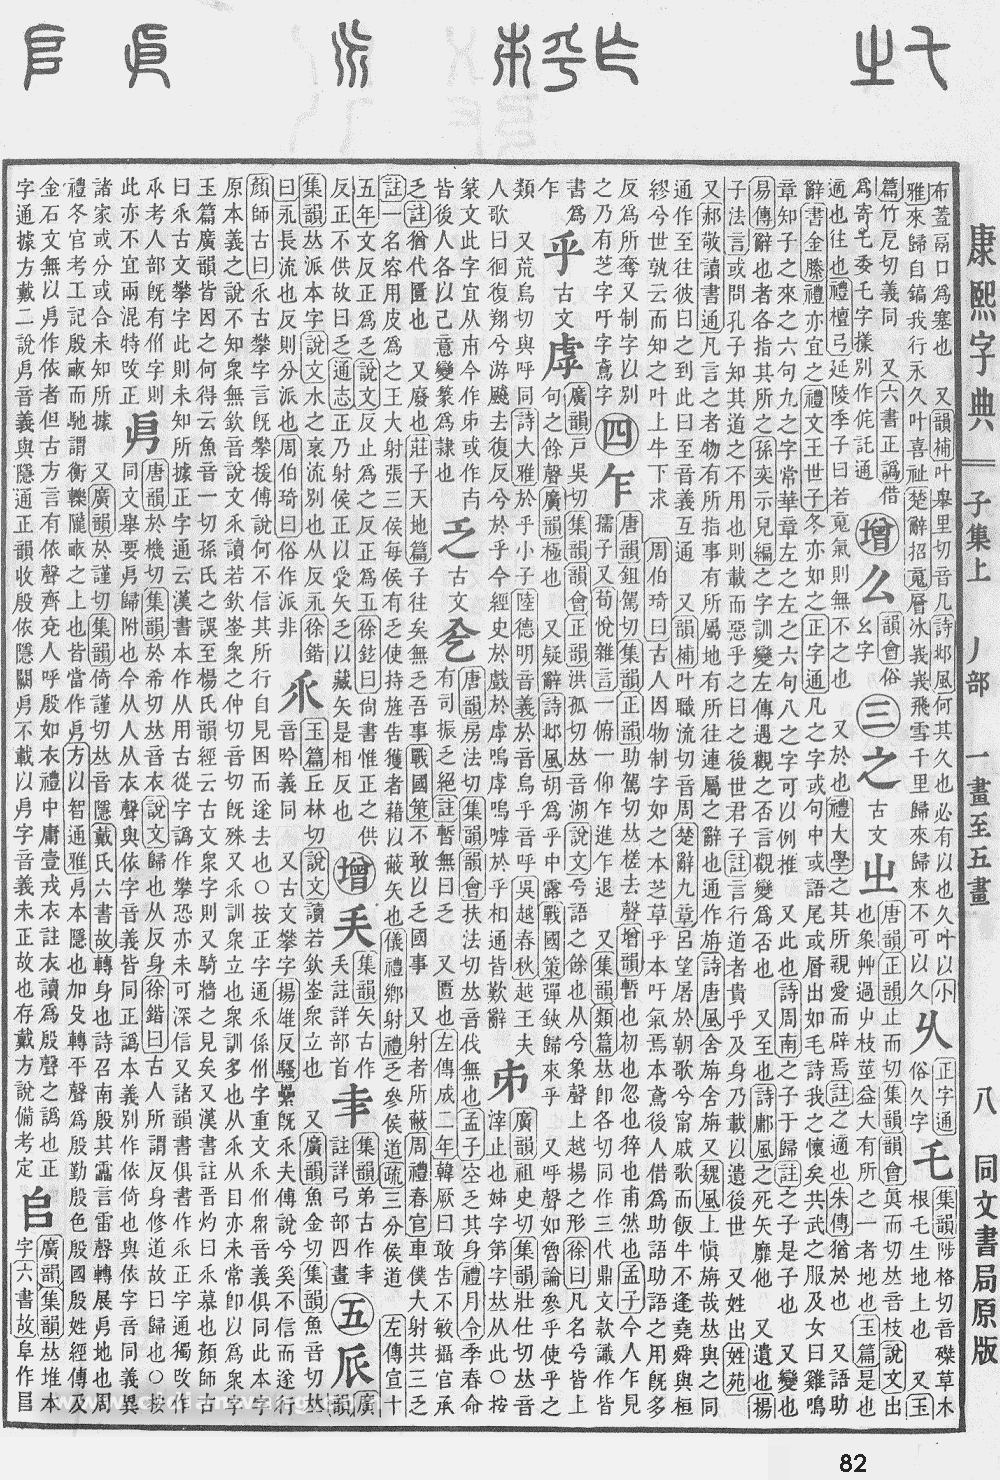 康熙字典 子集上 丿部 一畫至五畫 八 同文書局原版
布蓋鬲口爲塞也 又韻補叶舉里切音几詩邶風何其久也必有以也久叶以小
雅來歸自鎬我行永久叶喜祉楚辭招䰟層冰峩峩飛雪千里歸來歸來不可以久
乆
正字通
俗久字
乇
集韻陟格切音磔草木
根乇生地上也 又玉
篇竹尼切義同 又六書正譌借
爲寄乇委乇字㨾別作侂託通
增
么
韻會俗
幺字
三
之
古文
㞢
唐韻正韻止而切集韻韻會眞而切𠀤音枝說文出
也象艸過屮枝莖益大有所之一者地也玉篇是也
適也往也禮檀弓延陵季子曰若䰟氣則無不之也 又於也禮大學之其所親愛而辟焉註之適也朱傳猶於也 又語助
辭書金縢禮亦宜之禮文王世子冬亦如之正字通凡之字或句中或語尾或層出如毛詩我之懷矣共武之服及女曰雞鳴
章知子之來之六句九之字常華章左之左之六句八之字可以例推 又此也詩周南之子于歸註之子是子也 又變也
易傳辭也者各指其所之孫奕示兒編之字訓變左傳遇觀之否言觀變爲否也 又至也詩鄘風之死矢靡他 又遺也揚
子法言或問孔子知其道之不用也則載而惡乎之曰之後世君子註言行道者貴乎及身乃載以遺後世 又姓出姓苑
又郝敬讀書通凡言之者物有所指事有所屬地有所往連屬之辭也通作旃詩唐風舍旃舍旃又魏風上愼旃哉𠀤與之同
通作至往彼曰之到此曰至音義互通 又韻補叶職流切音周楚辭九章呂望屠於朝歌兮甯戚歌而飯牛不逢堯舜與桓
繆兮世孰云而知之叶上牛下求 周伯琦曰古人因物制字如之本芝草乎本吁氣焉本鳶後人借爲助語助語之用旣多
反爲所奪又制字以別
之乃有芝字吁字鳶字
四
乍
唐韻鉏駕切集韻正韻助駕切𠀤槎去聲增韻暫也初也忽也猝也甫然也孟子今人乍見
孺子又荀悅雜言一俯一仰乍進乍退 又集韻類篇𠀤卽各切同作三代鼎文款識作皆
書爲
乍
乎
古文
虖
廣韻戸吳切集韻韻會正韻洪孤切𠀤音湖說文兮語之餘也从兮象聲上越揚之形徐曰凡名兮皆
句之餘聲廣韻極也 又疑辭詩邶風胡爲乎中露戰國策彈鋏歸來乎 又呼聲如曾論參乎使乎之
類 又荒烏切與呼同詩大雅於乎小子陸德明音義於音烏乎音呼吳越春秋越王夫
人歌曰徊復翔兮游颺去復反兮於乎今經史於戲於虖嗚虖嗚嘑於乎相通皆歎辭
𠂔
廣韻祖史切集韻壯仕切𠀤
滓止也姊字第字𠀤从此○按
篆文此字宜从巿今作𠂔或作
皆後人各以己意變篆爲隸也
乏
古文
唐韻房法切集韻韻會扶法切𠀤音伐無也孟子空乏其身禮月令季春命
有司振乏絕註暫無曰乏 又匱也左傳成二年韓厥曰敢告不敏攝官承
乏註猶代匱也 又廢也莊子天地篇子往矣無乏吾事戰國策不敢以乏國事 又射者所蔽周禮春官車僕大射共三乏
註一名容用皮爲之王大射張三侯每侯有乏使持旌告獲者藉以蔽矢也儀禮鄉射禮乏參侯道疏三分侯道 左傳宣十
五年文反正爲乏說文反止爲之反正爲五徐鉉曰尙書惟正之供
反正不供故曰乏通志正乃射侯正以受矢乏以藏矢是相反也
增
集韻矢古作
註詳部首
集韻弟古作
註詳弓部四畫
五
𠂢
廣韻
集韻𠀤派本字說文水之衺流別也从反永徐鍇
曰永長流也反則分派也周伯琦曰俗作派非
乑
玉篇丘林切說文讀若欽崟衆立也 又廣韻魚金切集韻魚音切𠀤
音吟義同 又古文攀字揚雄反騷纍旣乑夫傳說兮奚不信而遂行
顏師古曰乑古攀字言旣攀援傅說何不信其所行自見困而遂去也○按正字通乑係㐺字重文乑㐺衆音義俱同此本字
原本義之說不知衆無欽音說文乑讀若欽崟衆之仲切音切旣殊又乑訓衆立也衆訓多也从乑从目亦未常卽以爲衆字
玉篇廣韻皆因之何得云魚音一切孫氏之誤至楊氏韻經云古文衆字則又騎牆之見矣又漢書註晉灼曰乑慕也顏師古
曰乑古文攀字此則未知所據正字通云漢書本作从用古從字譌作攀恐亦未可深信又諸韻書俱書作乑正字通獨攺作
承考人部旣有㐺字則
此亦不宜兩混特攺正
唐韻於機切集韻於希切𠀤音衣說文歸也从反身徐鍇曰古人所謂反身修道故曰歸也○按
同文舉要㐆歸附也今从人从衣聲與依字音義皆同正譌本義別作依倚也與依字音同義異
諸家或分或合未知所據 又廣韻於謹切集韻倚謹切𠀤音隱戴氏六書故轉身也詩召南殷其靁言雷聲轉展㐆地也周
禮冬官考工記殷畝而馳謂衡轢隴畝之上也皆當作㐆方以智通雅㐆本隱也加殳轉平聲爲殷勤殷色殷國殷姓經傳及
金石文無以㐆作依者但古方言有依聲齊兗人呼殷如衣禮中庸壹戎衣註衣讀爲殷聲之譌也正
字通據方戴二說㐆音義與隱通正韻收殷依隱關㐆不載以㐆字音義未正故也存戴方說備考定
𠂤
廣韻集韻𠀤堆本
字六書故阜作𠂤
82